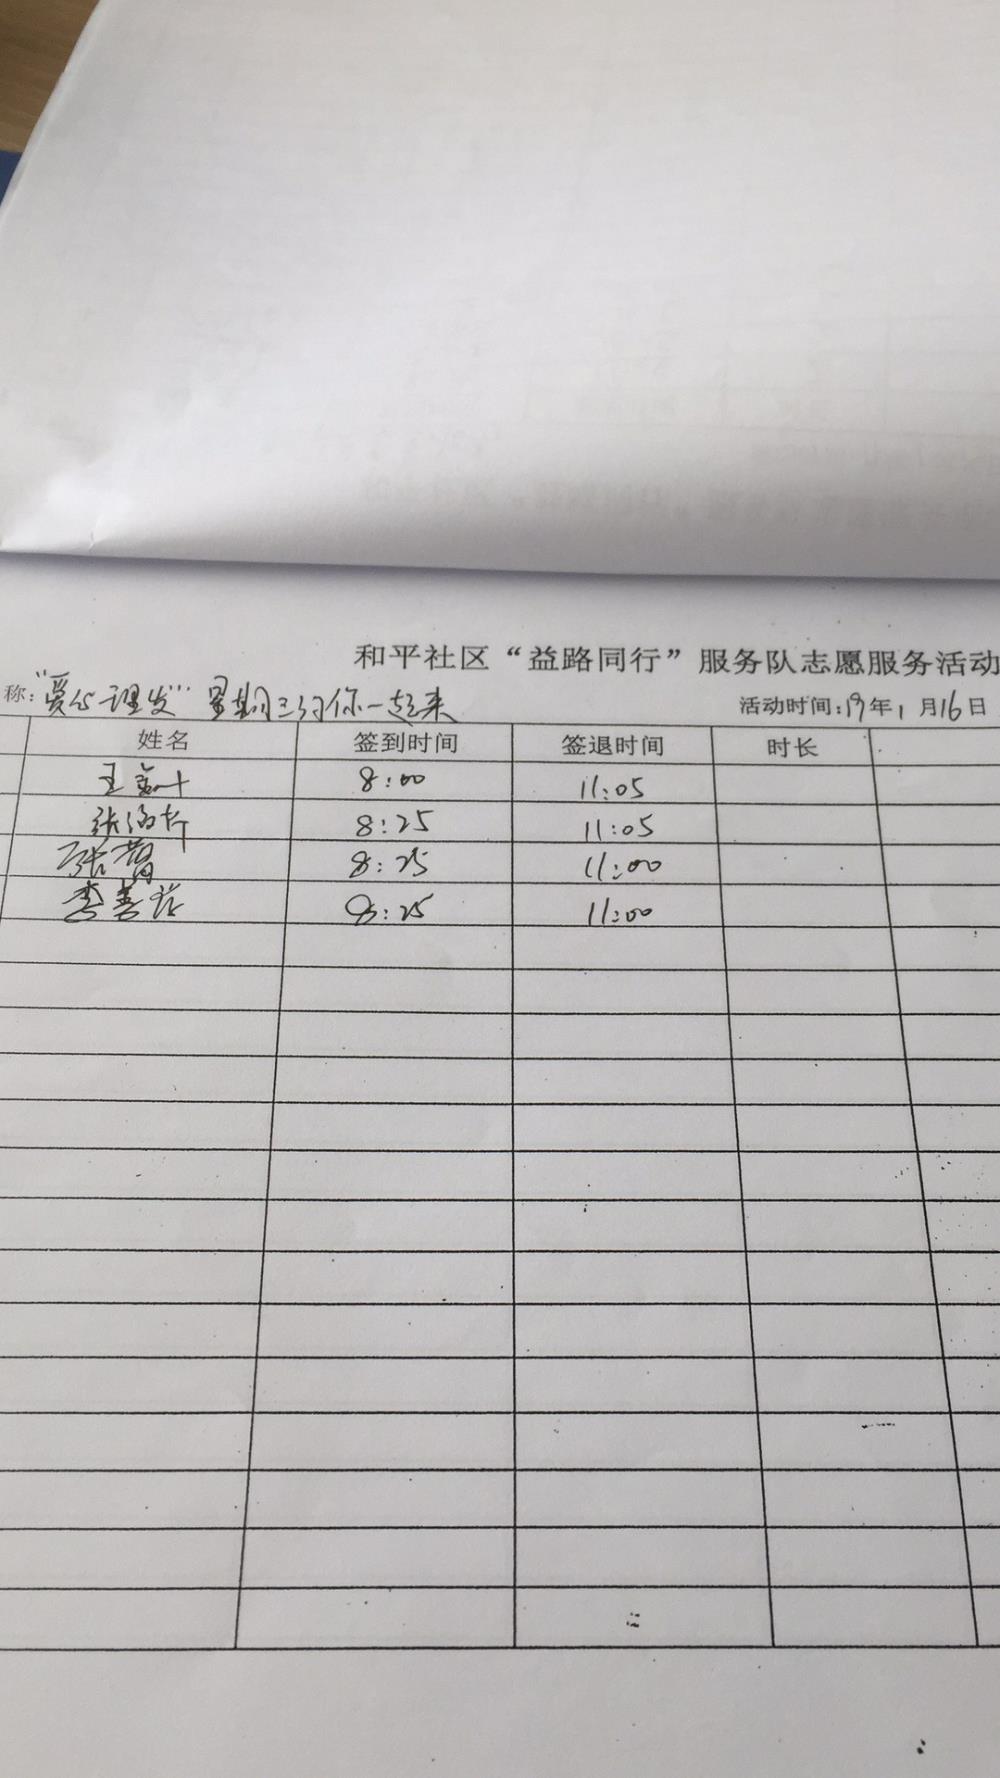 和平社区“益路同行”服务队志愿服务活动
称：“爱心理发” 星期三约你一起来 活动时间：19年1月16日
姓名 签到时间 签退时间 时长
王 8:00 11:05
张 8:25 11:05
张 8:25 11:00
李善 8:25 11:00